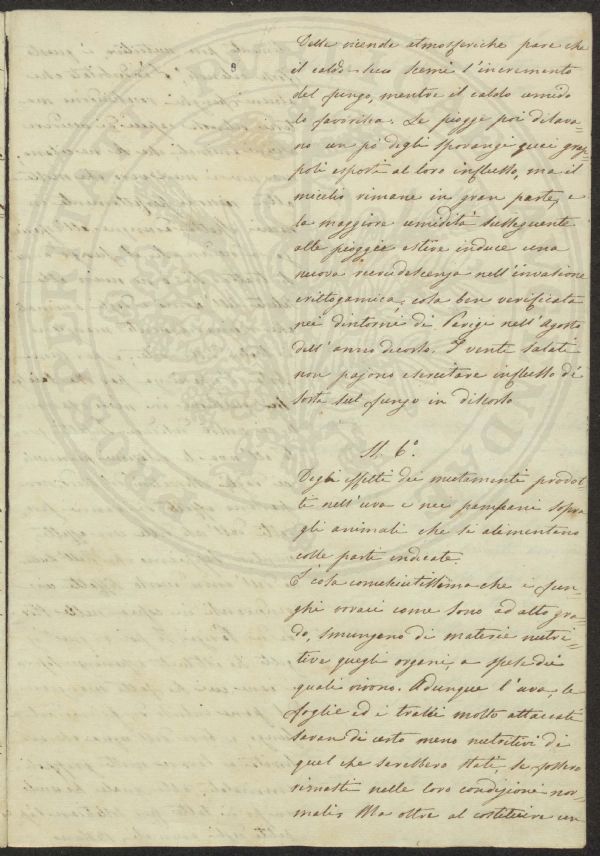 Delle vicende atmosferiche pare che
il caldo-secco scemi l'incremento
del fungo, mentre il caldo umido
lo favorisca. Le piogge poi dilava=
no un pò degli sporangi quai grap=
poli esposti al loro influsso, ma il
micelio rimane in gran parte, e
la maggiore umidità susseguente
alle pioggie estive induce una
nuova recrudescenza nell'invasione
crittogamica; cosa ben verificata
nei dintorni di Parigi nell'Agosto
dell'anno decorso. I venti salati
non pajono esercitare influsso di
sorta sul fungo in discorso
6.º
Degli effetti dei mutamenti prodot=
ti nell'uva e nei pampani sopra
gli animali che si alimentano
colle parti indicate.
È cosa conosciutissima che i fun=
ghi voraci come sono ad alto gra=
do, smungano di materie nutri=
tive quegli organi, a spese dei
quali vivono. Adunque l'uva, le
foglie ed i tralci molto attaccati
saran di certo meno nutritivi di
quel che sarebbero stati, se fossero
rimasti nelle loro condizioni nor=
mali. Ma oltre al costituire un